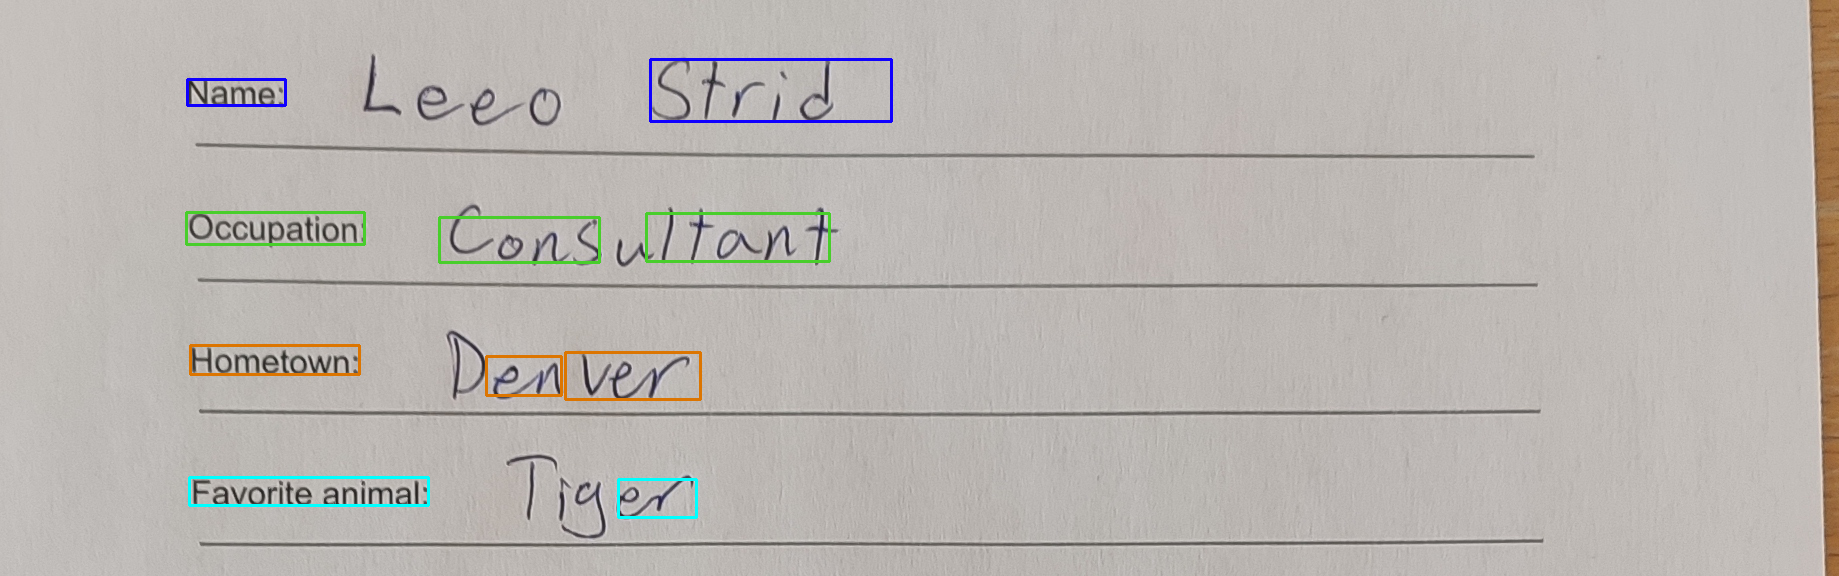 Name: Leeo Strid
Occupation: Consultant
Hometown: Denver
Favorite animal: Tiger